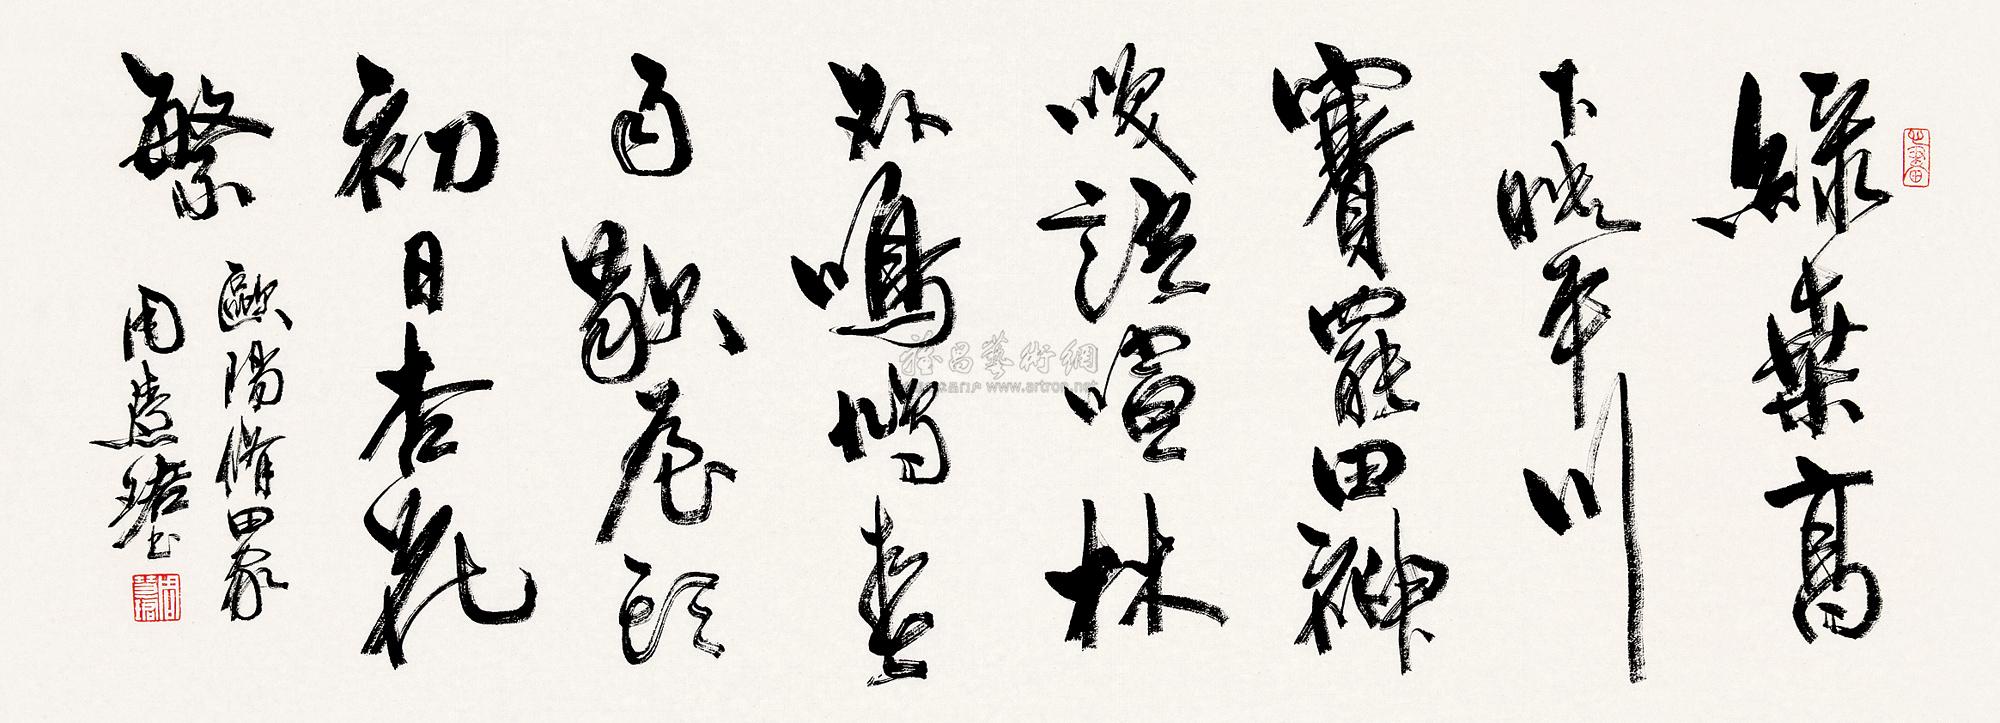 緑桑高
下映平川
賽罷田神
咲語喧林
外鳴鳩春
雨歇屋頭
初日杏花
繁
歐陽修田家
周慧珺書
周慧珺
雅昌藝術網
www.artron.net